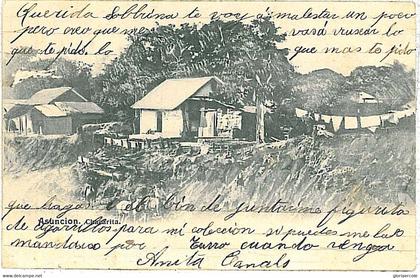 Querida Sobrina te voy á molestar un poco
pero creo que me
lo que te pido
lo que mas te pido
Asuncion. Chacarita.
que hagas el de juntarme figurita
de cigarrillos para mi colecion si puedes me las
mandas por Curro cuando venga
Anita Canals